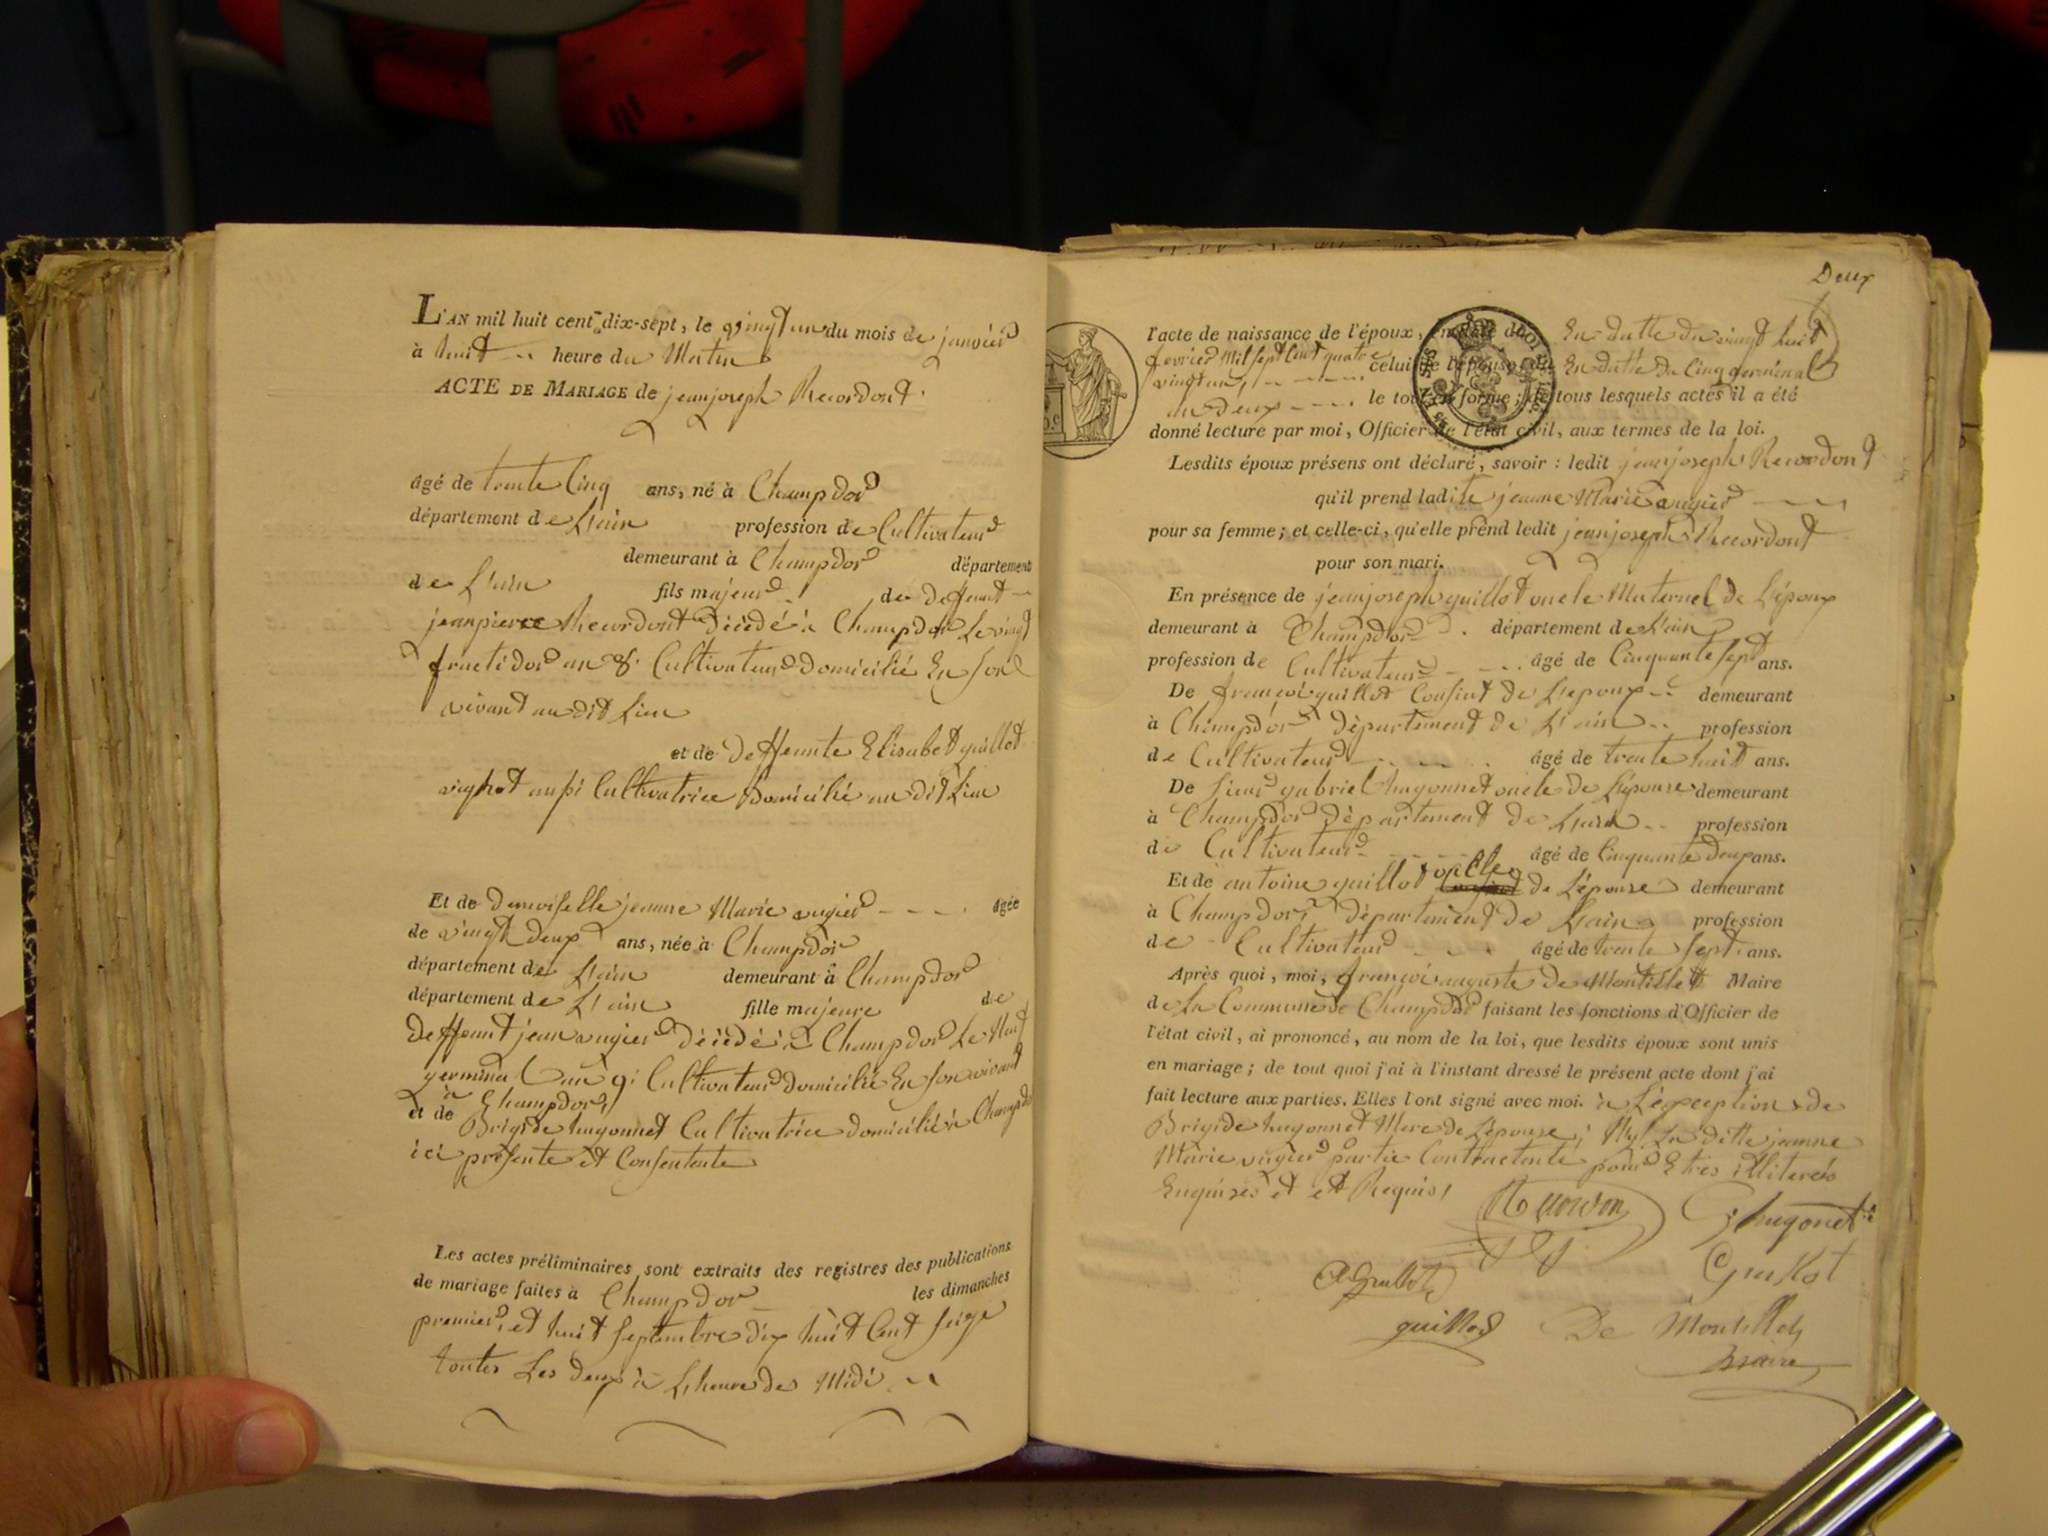 L'AN mil huit cent dix-sept, le vingt un du mois de janvier
à huit heure du Matin
ACTE DE MARIAGE de jeanjoseph Recordont
âgé de trente Cinq ans, né à Champdor
département de L'ain profession de Cultivateur
demeurant à Champdor département
de L'ain fils majeur de deffeunt
jeanpierre Recordont décédé à Champdor Le vingt
fructidor an 8. Cultivateur domicilié En son
vivant au dit Lieu
et de deffeunte Elisabet guillot
aussi Cultivatrice Domicilié au dit Lieu
Et de demoiselle jeanne Marie augier âgée
de vingt deux ans, née à Champdor
département de L'ain demeurant à Champdor
département de L'ain fille majeure de
deffeunt jean augier décédé à Champdor Le
germinal an 9. Cultivateur domicilié En son vivant
à Champdor,
et de Brigide hugonnet Cultivatrice domicilié à Champdor
ici présente et Consentente
Les actes préliminaires sont extraits des registres des publications
de mariage faites à Champdor les dimanches
premier, et huit septembre dix huit Cent seize
toutes Les deux à L'heure de Midi
Deux
l'acte de naissance de l'époux, En datte du vingt huit
fevrier Mil sept Cent quatre
vingt un, celui de l'épouse, En datte du Cinq germinal
an deux le tout en forme; de tous lesquels actes il a été
donné lecture par moi, Officier de l'état civil, aux termes de la loi.
Lesdits époux présens ont déclaré, savoir : ledit jeanjoseph Recordont
qu'il prend ladite jeanne Marie augier
pour sa femme; et celle-ci, qu'elle prend ledit jeanjoseph Recordont
pour son mari.
En présence de jeanjoseph guillot oncle Maternel de L'époux
demeurant à Champdor département de L'ain
profession de Cultivateur âgé de Cinquante sept ans.
De françois guillot Cousint de L'epoux demeurant
à Champdor département de L'ain profession
de Cultivateur âgé de trente huit ans.
De sieur gabriel hugonnet oncle de L'épouse demeurant
à Champdor département de L'ain profession
de Cultivateur âgé de Cinquante deux ans.
Et de antoine guillot oncle de L'épouse demeurant
à Champdor, département de L'ain profession
de Cultivateur âgé de trente sept ans.
Après quoi, moi, françois auguste de Montillet Maire
de La Commune de Champdor faisant les fonctions d'Officier de
l'état civil, ai prononcé, au nom de la loi, que lesdits époux sont unis
en mariage; de tout quoi j'ai à l'instant dressé le présent acte dont j'ai
fait lecture aux parties. Elles l'ont signé avec moi. à L'exception de
Brigide hugonnet Mere de L'épouse, Ny La ditte jeanne
Marie augier partie Contractente pour Etres illiterés
Enquises et et Requis,
Recordon G. hugonet
A Guillot Guillot
guillot De Montillet
maire